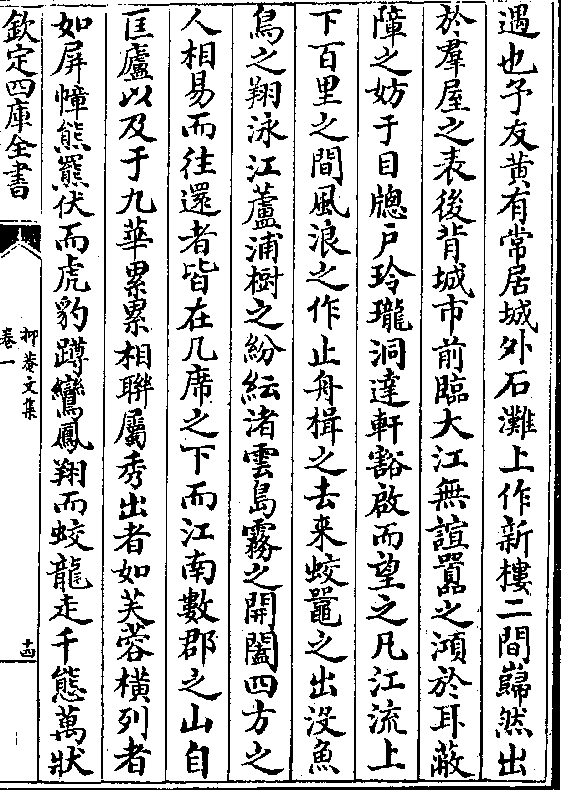 遇也予友黄有常居城外石灘上作新樓二間巋然出
於羣屋之表後背城市前臨大江無諠囂之澒於耳蔽
障之妨于目牕戶玲瓏洞達軒豁啟而望之凡江流上
下百里之間風浪之作止舟楫之去來蛟鼉之出沒魚
鳥之翔泳江蘆浦樹之紛紜渚雲島霧之開闔四方之
人相易而往還者皆在几席之下而江南數郡之山自
匡廬以及于九華累累相聯屬秀出者如芙蓉橫列者
如屏幛熊羆伏而虎豹蹲鸞鳳翔而蛟龍走千態萬狀
欽定四庫全書
抑菴文集
卷一
十四